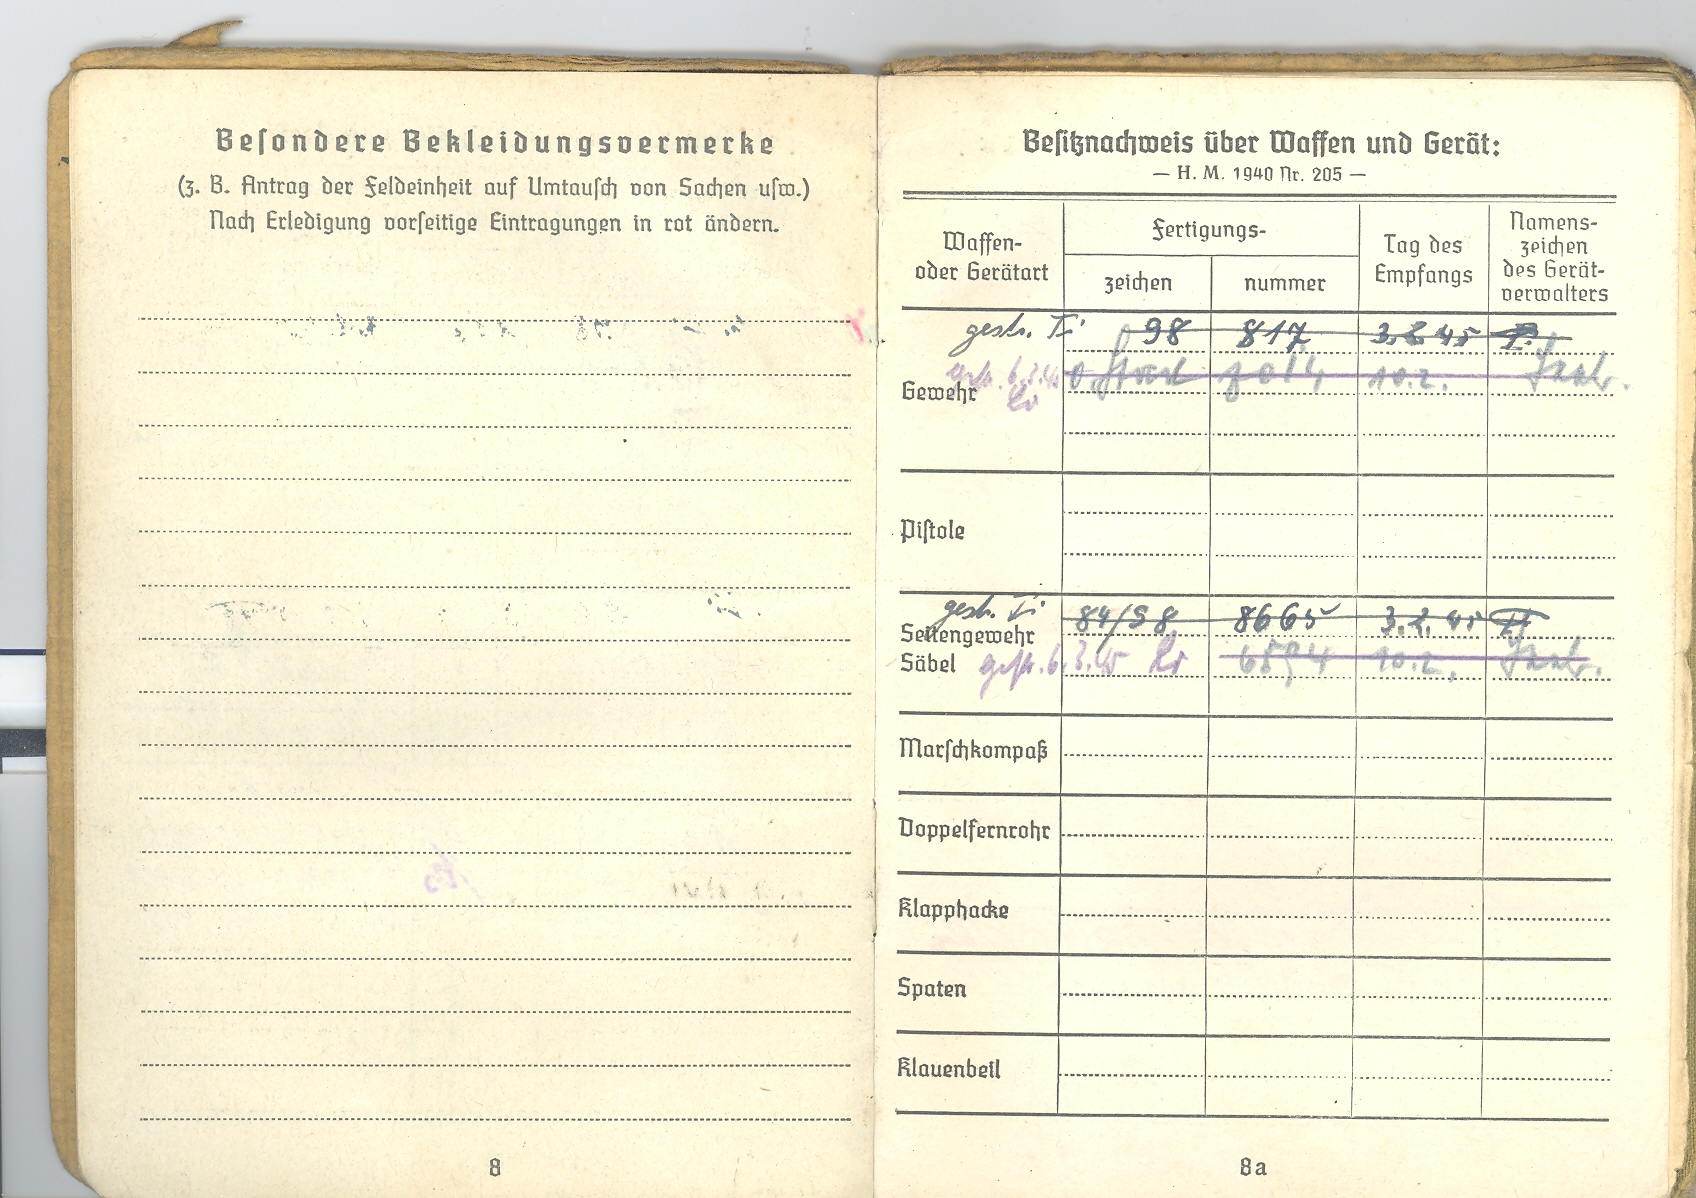 Besondere Bekleidungsvermerke
(z. B. Antrag der Feldeinheit auf Umtausch von Sachen usw.)
Nach Erledigung vorseitige Eintragungen in rot ändern.
8
Besitznachweis über Waffen und Gerät:
— H. M. 1940 Nr. 205 —
Waffen-
oder Gerätart
Fertigungs-
zeichen
nummer
Tag des
Empfangs
Namens-
zeichen
des Gerät-
verwalters
gestr. 98 817 3.2.45
Gewehr
gestr. 6.3.45 10.2.
Pistole
gestr. 84/98 8665 3.2.45
Seitengewehr
Säbel gestr. 6.3.45 6594 10.2.
Marschkompaß
Doppelfernrohr
Klapphacke
Spaten
Klauenbeil
8a